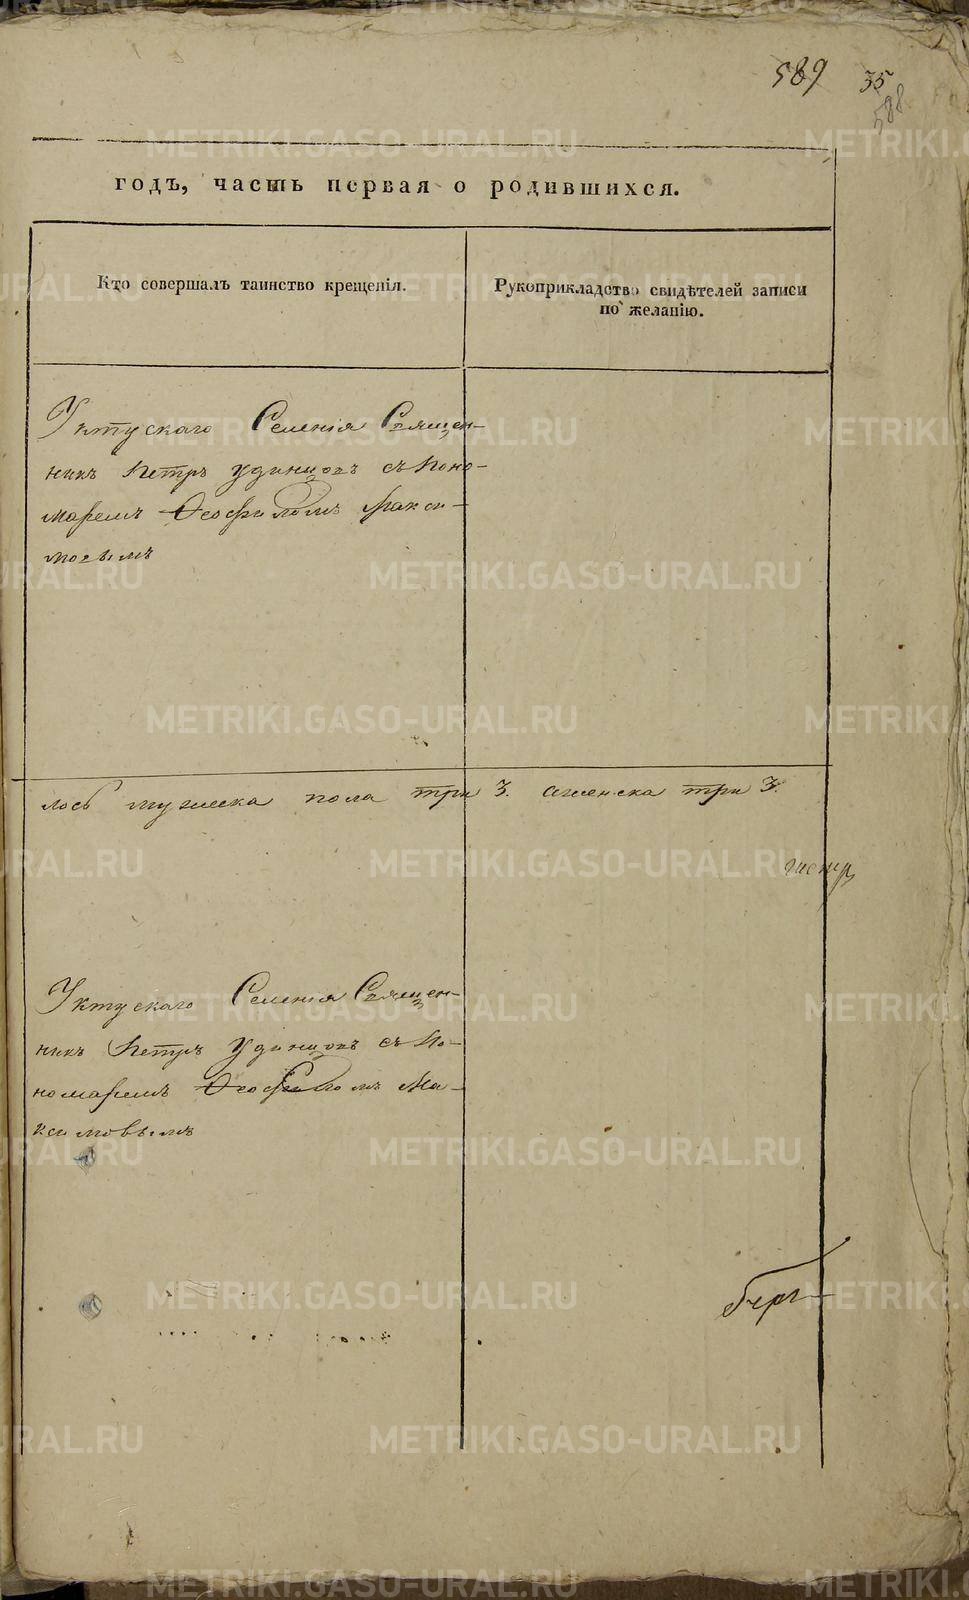 589 35
588
годъ, часть первая о родившихся.
Кто совершалъ таинство крещенія.
Рукоприкладство свидѣтелей записи
по желанію.
Уктускаго Селенія Священ-
никъ Петръ Удинцовъ съ Поно-
маремъ Ѳеофиломъ Макси-
мовымъ
лось мужеска пола три 3. аженска три 3.
Уктускаго Селенія Священ-
никъ Петръ Удинцовъ съ По-
номаремъ Ѳеофиломъ Ма-
ксимовымъ
METRIKI.GASO-URAL.RU